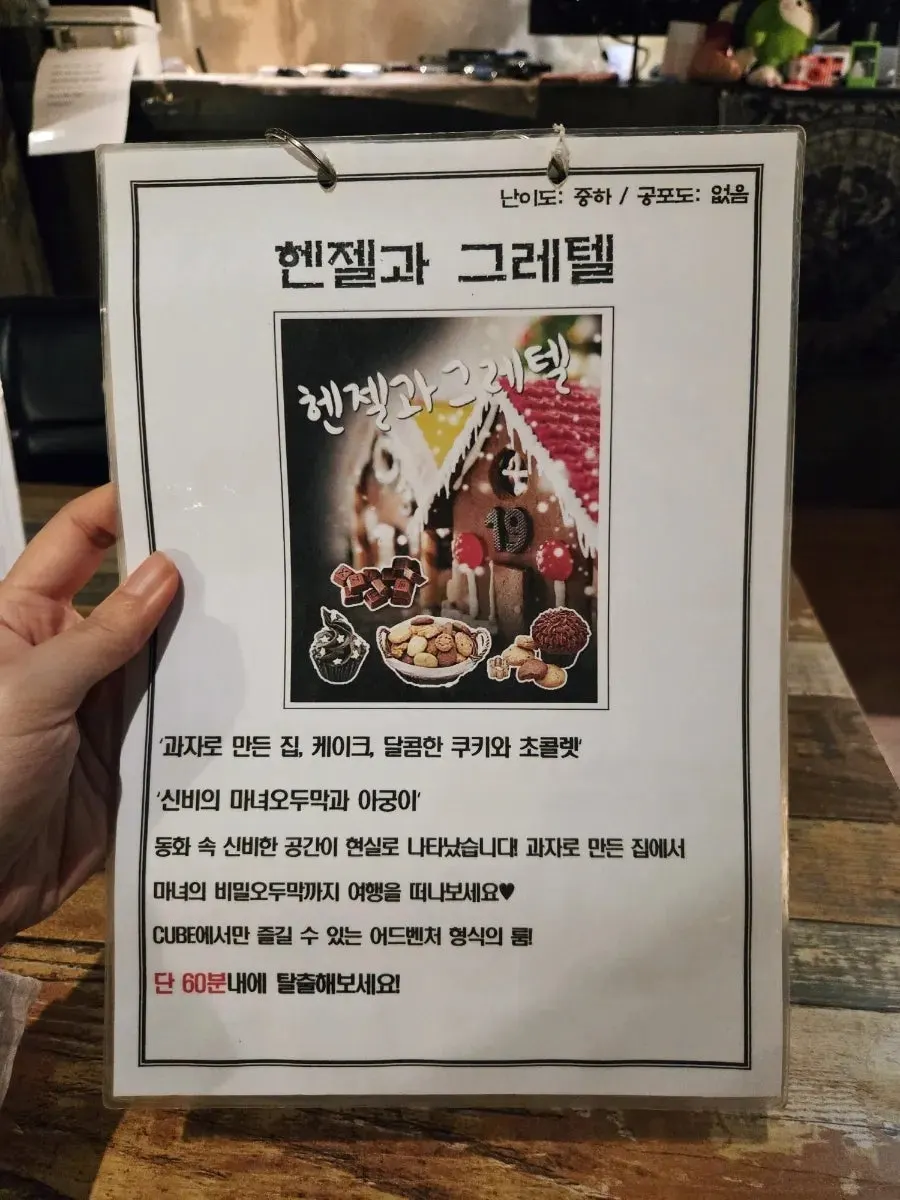 난이도: 중하 / 공포도: 없음
헨젤과 그레텔
헨젤과그레텔
19
'과자로 만든 집, 케이크, 달콤한 쿠키와 초콜렛'
'신비의 마녀오두막과 아궁이'
동화 속 신비한 공간이 현실로 나타났습니다! 과자로 만든 집에서
마녀의 비밀오두막까지 여행을 떠나보세요♥
CUBE에서만 즐길 수 있는 어드벤처 형식의 룸!
단 60분내에 탈출해보세요!